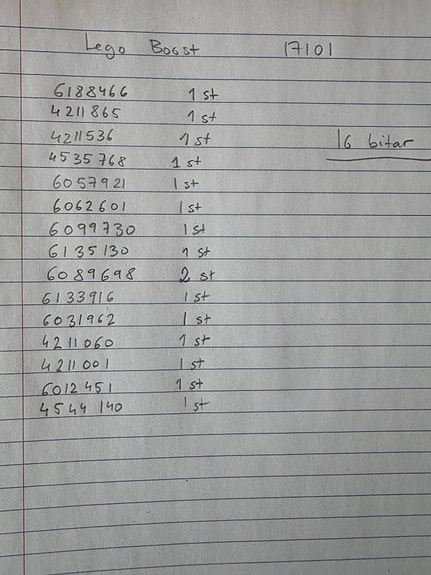 Lego Boost 17101
6188466 1 st
4211865 1 st
4211536 1 st
16 bitar
4535768 1 st
6057921 1 st
6062601 1 st
6099730 1 st
6135130 1 st
6089698 2 st
6133916 1 st
6031962 1 st
4211060 1 st
4211001 1 st
6012451 1 st
4544140 1 st